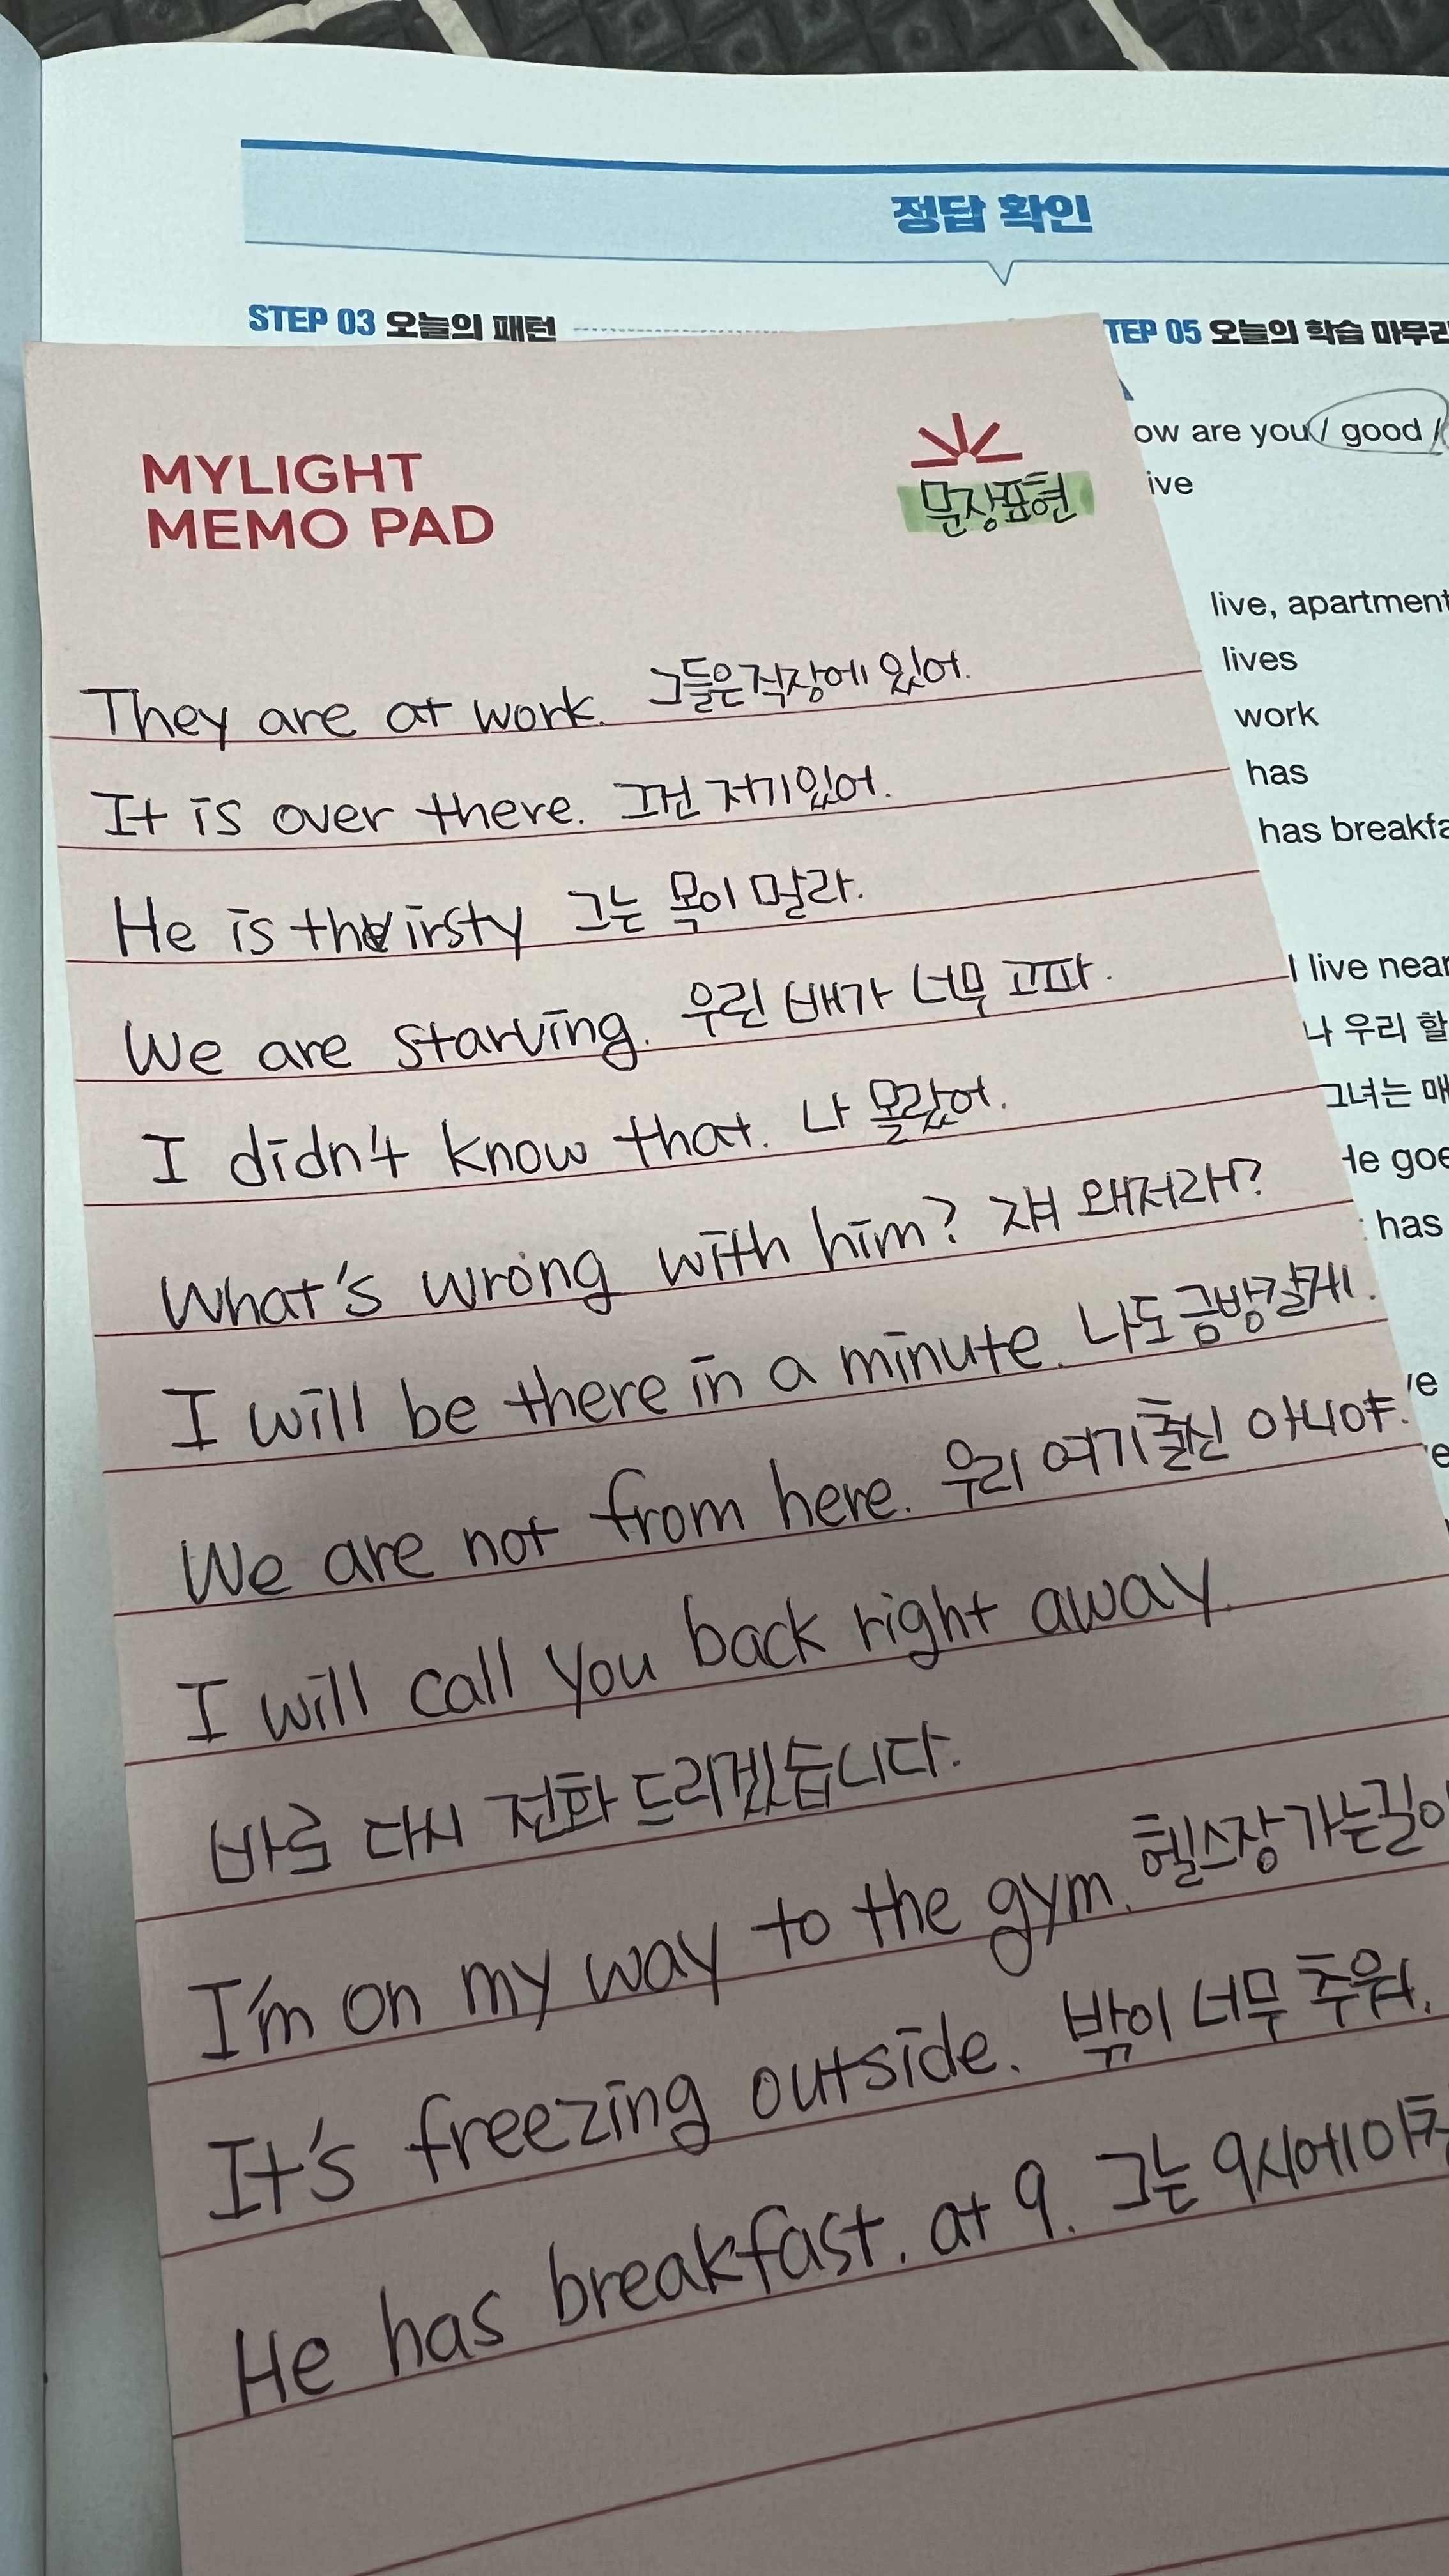 정답 확인
STEP 03 오늘의 패턴
TEP 05 오늘의 학습 마무리
ow are you / good /
ive
live, apartment
lives
work
has
has breakfa
I live near
나 우리 할
그녀는 매
He goe
has
MYLIGHT
MEMO PAD
문장표현
They are at work. 그들은 직장에 있어.
It is over there. 그건 저기있어.
He is thirsty 그는 목이 멀라.
We are starving. 우린 배가 너무 고파.
I didn't know that. 나 몰랐어.
What's wrong with him? 쟤 왜저래?
I will be there in a minute. 나도 금방갈게.
We are not from here. 우리 여기출신 아니야.
I will call you back right away.
바로 다시 전화 드리겠습니다.
I'm on my way to the gym. 헬스장 가는길이
It's freezing outside. 밖이 너무 추워.
He has breakfast. at 9. 그는 9시에